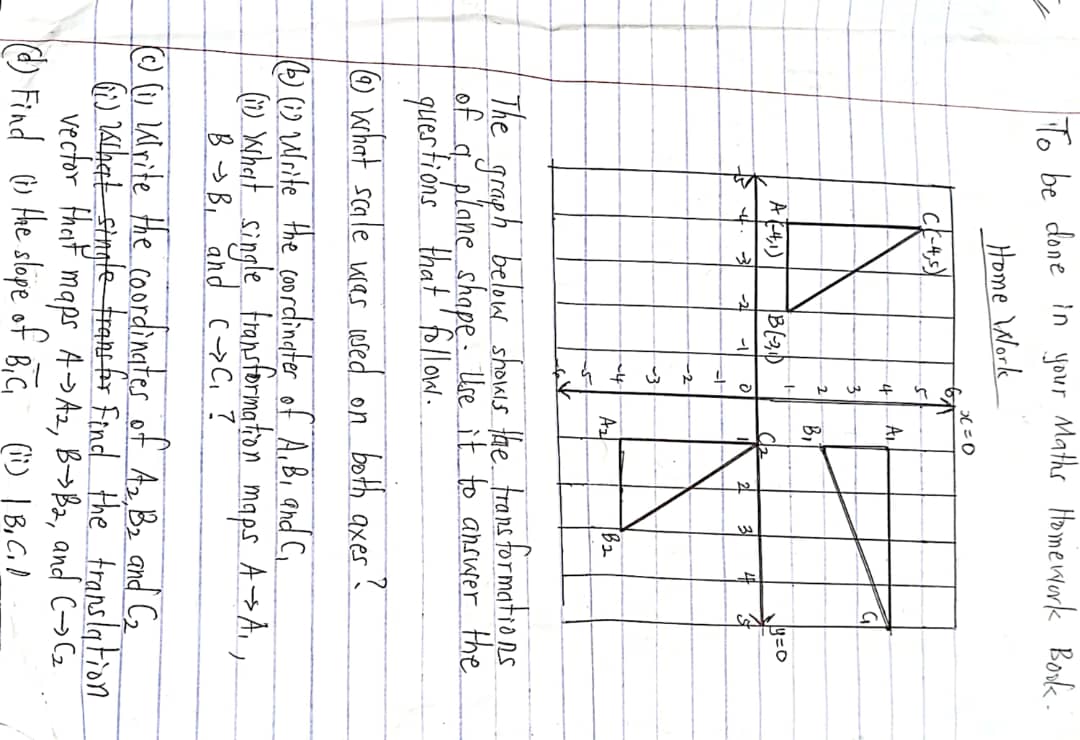 To be done in your Maths Homework Book.
Home Work
x=0
6
C(-4,5)
5
A1
4
C1
3
2
B1
A(-4,1)
B(-2,1)
1
y=0
-5 -4 -3 -2 -1 0 1 2 3 4 5
C2
-1
-2
-3
-4
A2
B2
-5
-6
The graph below shows the transformations
of a plane shape. Use it to answer the
questions that follow.
(a) What scale was used on both axes?
(b) (i) Write the coordinater of A1B1 and C1
(ii) What single transformation maps A→A1,
B→B1 and C→C1?
(c) (i) Write the coordinates of A2,B2 and C2
(ii) What single transfor find the translation
vector that maps A→A2, B→B2, and C→C2
(d) Find (i) the slope of B1C1 (ii) |B1C1|